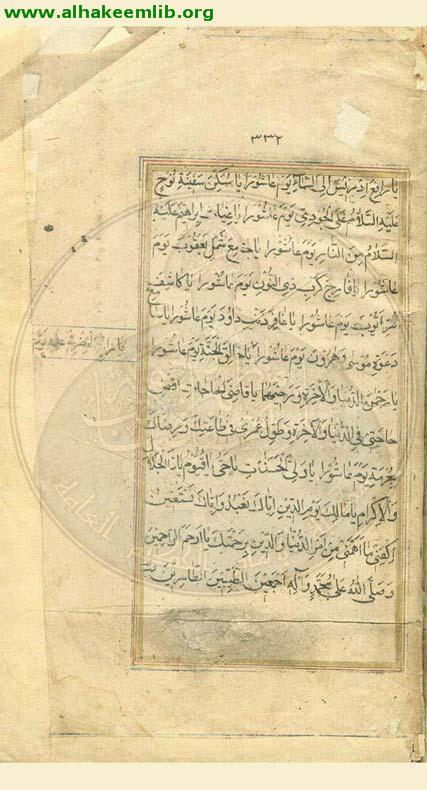 www.alhakeemlib.org
٣٣٢
يا رافع ادريس الى السماء يوم عاشورا يا مسكن سفينة نوح
عليه السلام على الجودي يوم عاشورا يا غياث ابراهيم عليه
السلام من النار يوم عاشورا يا جامع شمل يعقوب يوم
عاشورا يا فارج كرب ذي النون يوم عاشورا يا كاشف
ضر ايوب يوم عاشورا يا غافر ذنب داود يوم عاشورا يا سامع
دعوة موسى وهرون يوم عاشورا يا خالق الجنة يوم عاشورا
يا رحمن الدنيا والاخرة ورحيمهما يا قاضي الحاجات اقض
حاجتي في الدنيا والاخرة وطول عمري في طاعتك ورضاك
بحرمة يوم عاشورا يا ولي الحسنات يا حي يا قيوم يا ذا الجلال
والاكرام يا مالك يوم الدين اياك نعبد واياك نستعين
اكفني ما اهمني من امر الدنيا والدين برحمتك يا ارحم الراحمين
وصلى الله على محمد وآله اجمعين الطيبين الطاهرين